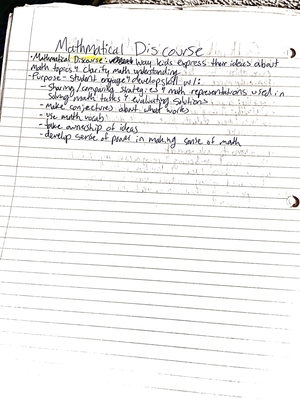 Mathmatical Discourse
• Mathmatical Discourse: way kids express their ideas about
math topics & clarify math understanding
• Purpose - Student engage & develop skill w/:
- Sharing/comparing strategies & math representations used in
solving math tasks & evaluating solutions
- make conjectures about what works
- use math vocab
- take ownership of ideas
- develop sense of power in making sense of math